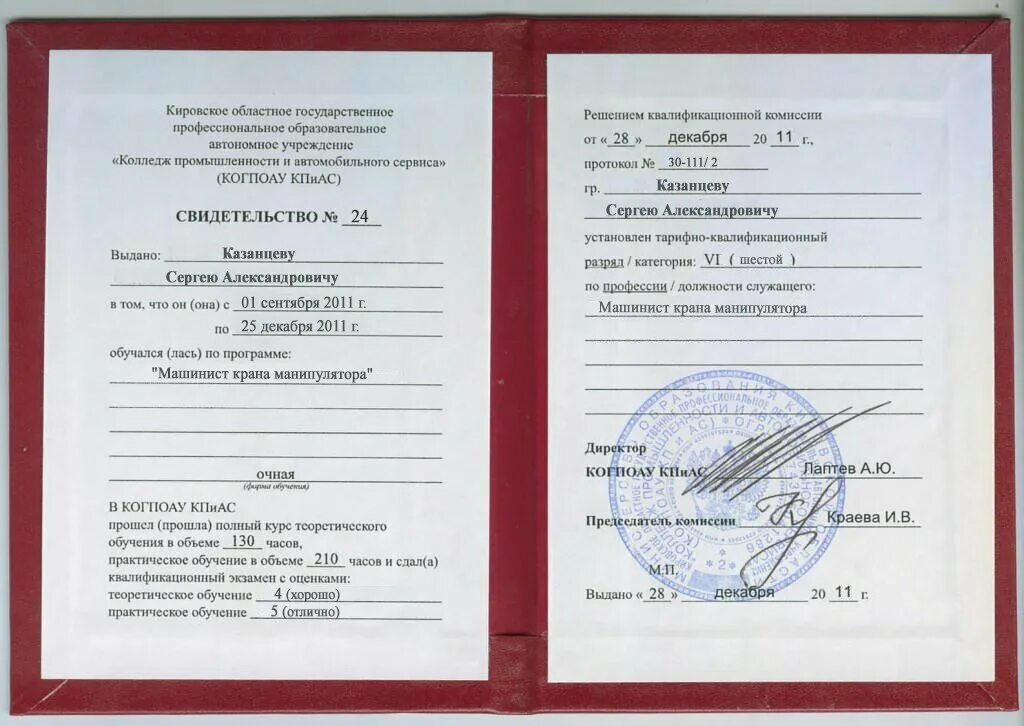 Кировское областное государственное
профессиональное образовательное
автономное учреждение
«Колледж промышленности и автомобильного сервиса»
(КОГПОАУ КПиАС)
СВИДЕТЕЛЬСТВО № 24
Выдано: Казанцеву
Сергею Александровичу
в том, что он (она) с 01 сентября 2011 г.
по 25 декабря 2011 г.
обучался (лась) по программе:
"Машинист крана манипулятора"
очная
(форма обучения)
В КОГПОАУ КПиАС
прошел (прошла) полный курс теоретического
обучения в объеме 130 часов,
практическое обучение в объеме 210 часов и сдал(а)
квалификационный экзамен с оценками:
теоретическое обучение 4 (хорошо)
практическое обучение 5 (отлично)
Решением квалификационной комиссии
от «28» декабря 20 11 г.,
протокол № 30-111/ 2
гр. Казанцеву
Сергею Александровичу
установлен тарифно-квалификационный
разряд / категория: VI ( шестой )
по профессии / должности служащего:
Машинист крана манипулятора
Директор
КОГПОАУ КПиАС Лаптев А.Ю.
Председатель комиссии Краева И.В.
М.П.
Выдано «28» декабря 20 11 г.